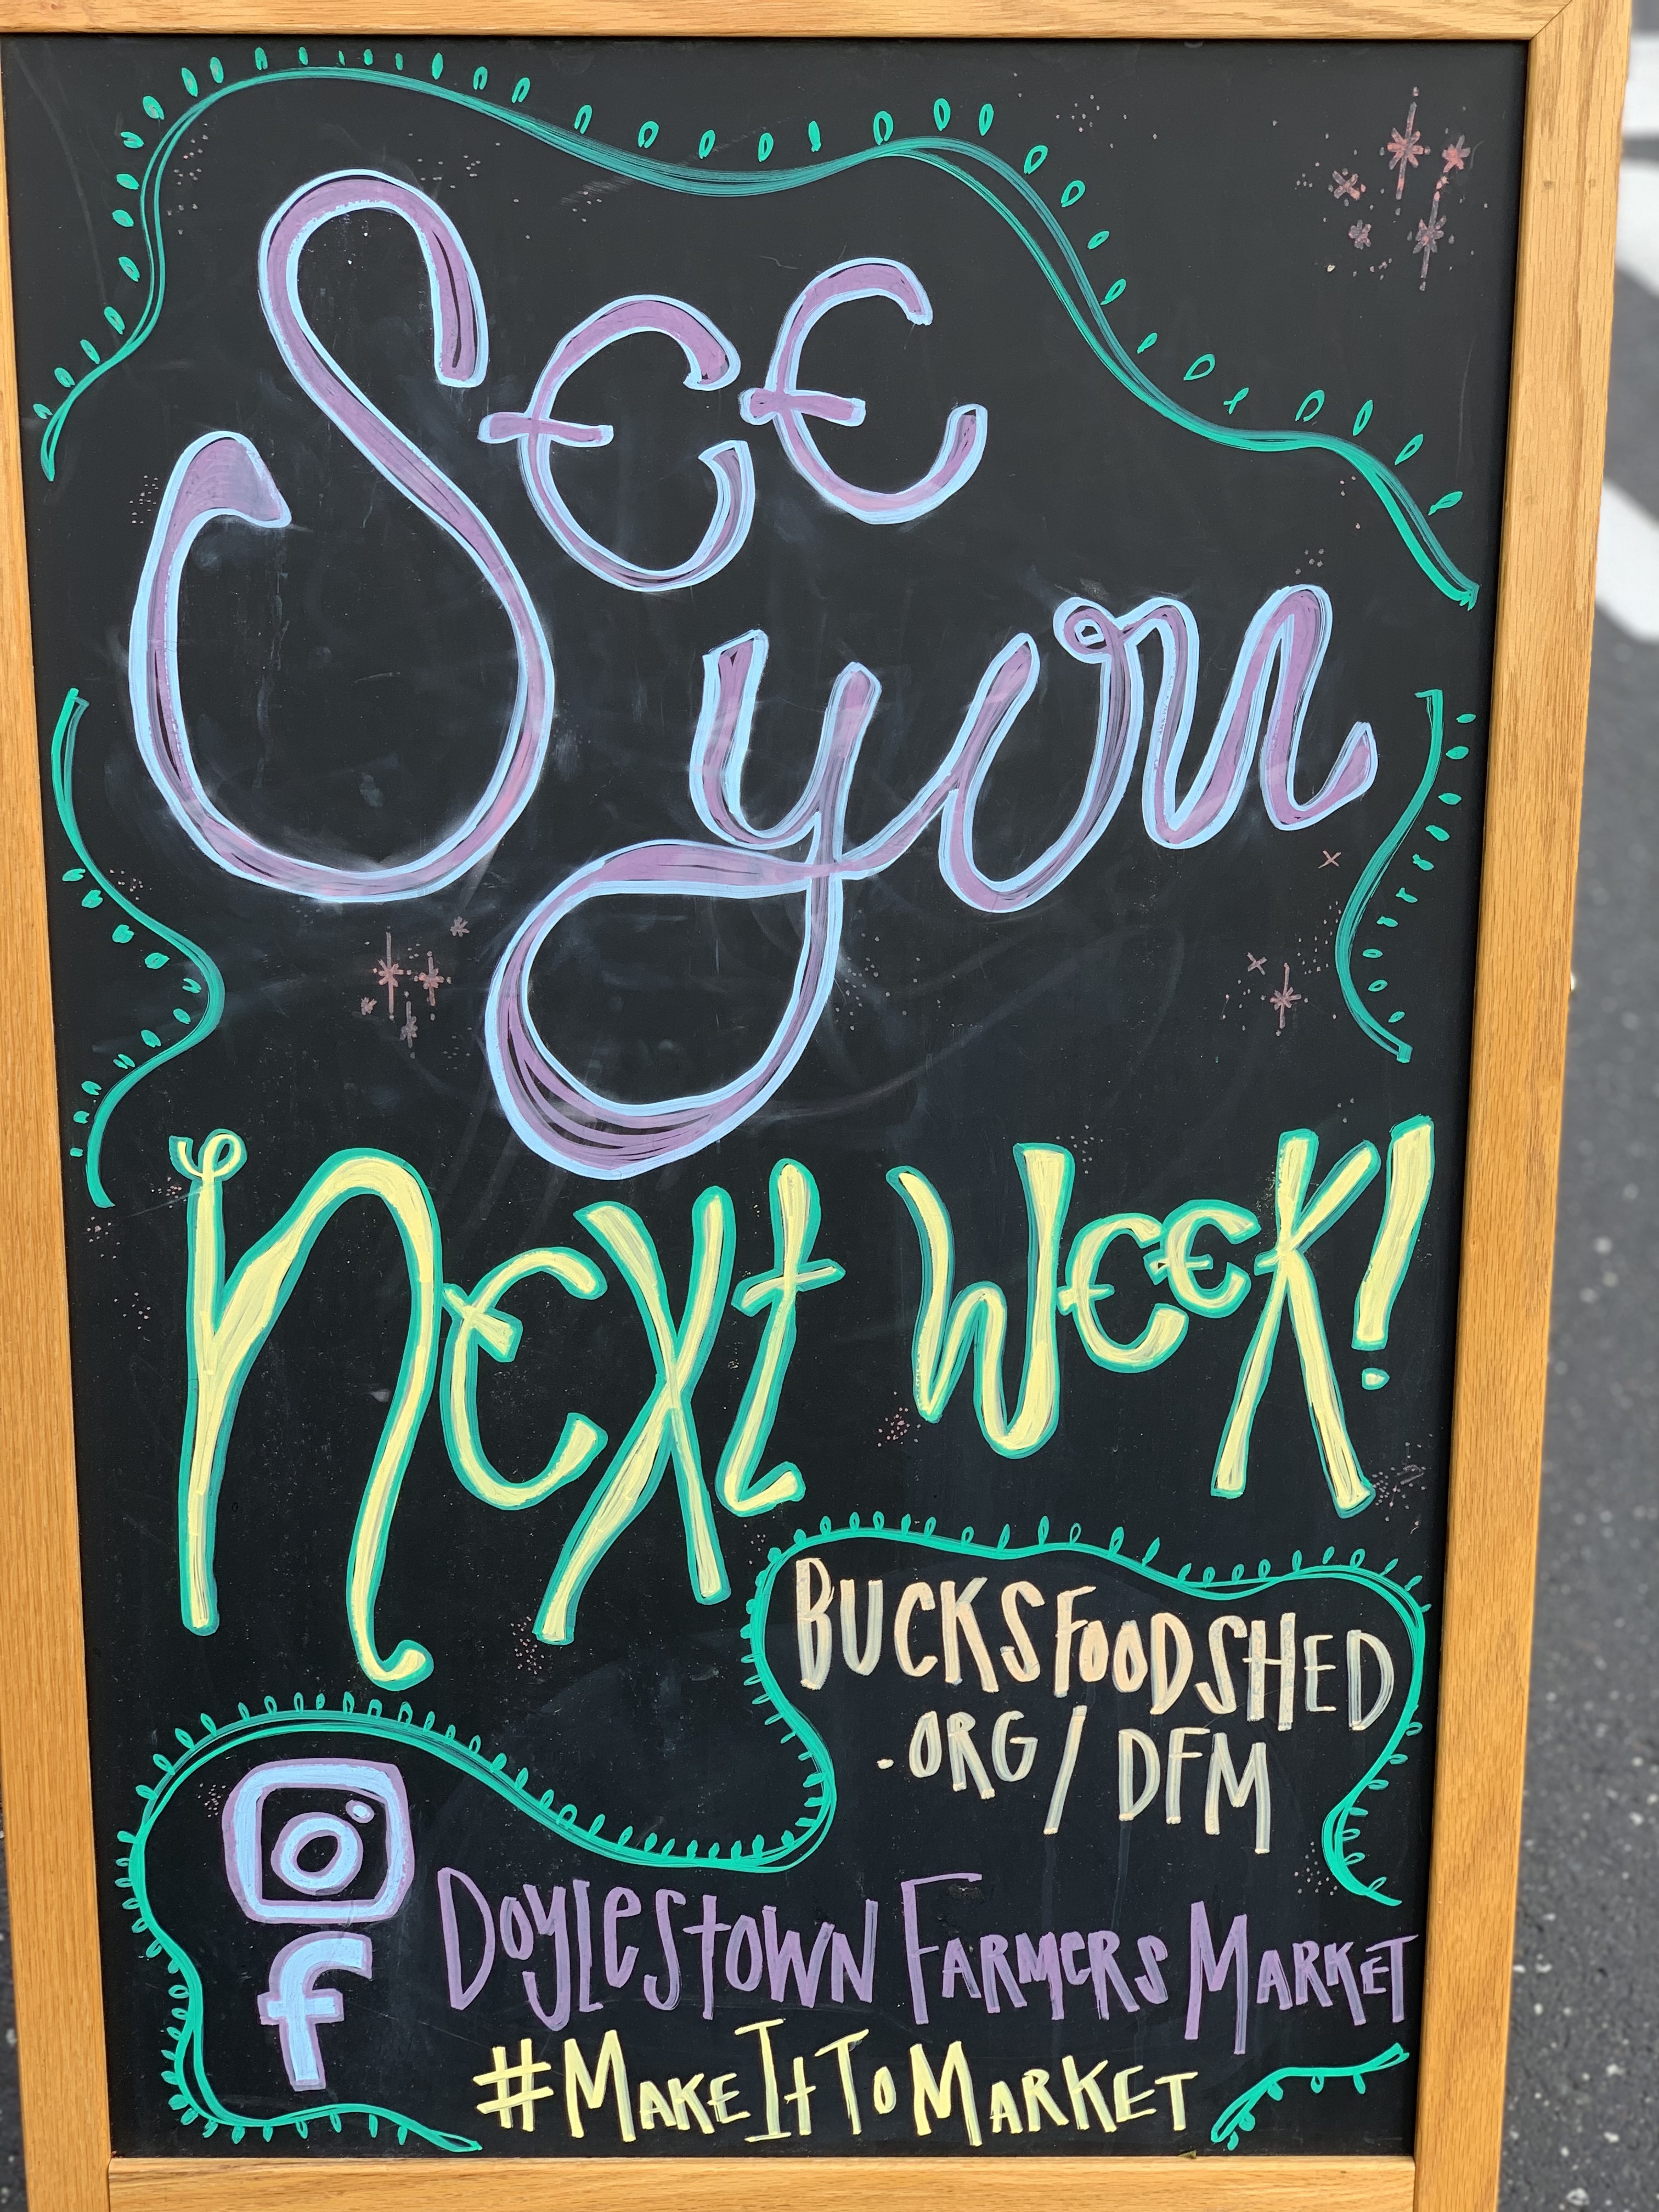 See
you
next week!
BUCKSFOODSHED
.ORG/DFM
Doylestown Farmers Market
#MakeItToMarket